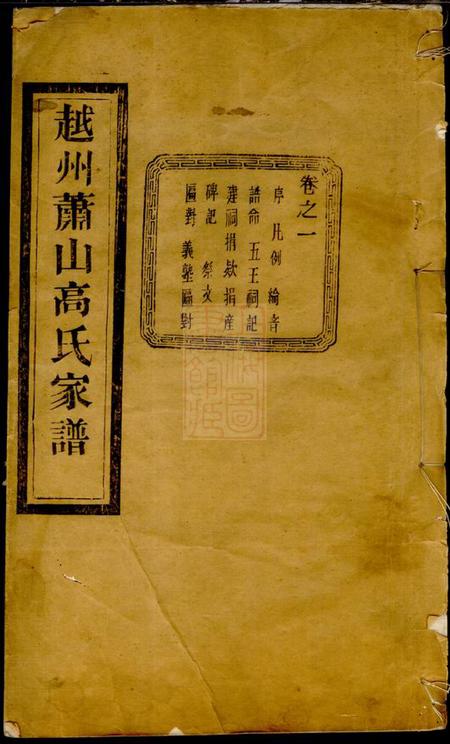 越州蕭山高氏家譜
卷之一
序 凡例 綸音
誥命 五王祠記
建祠捐欵捐產
碑記 祭文
匾對 義塾匾對